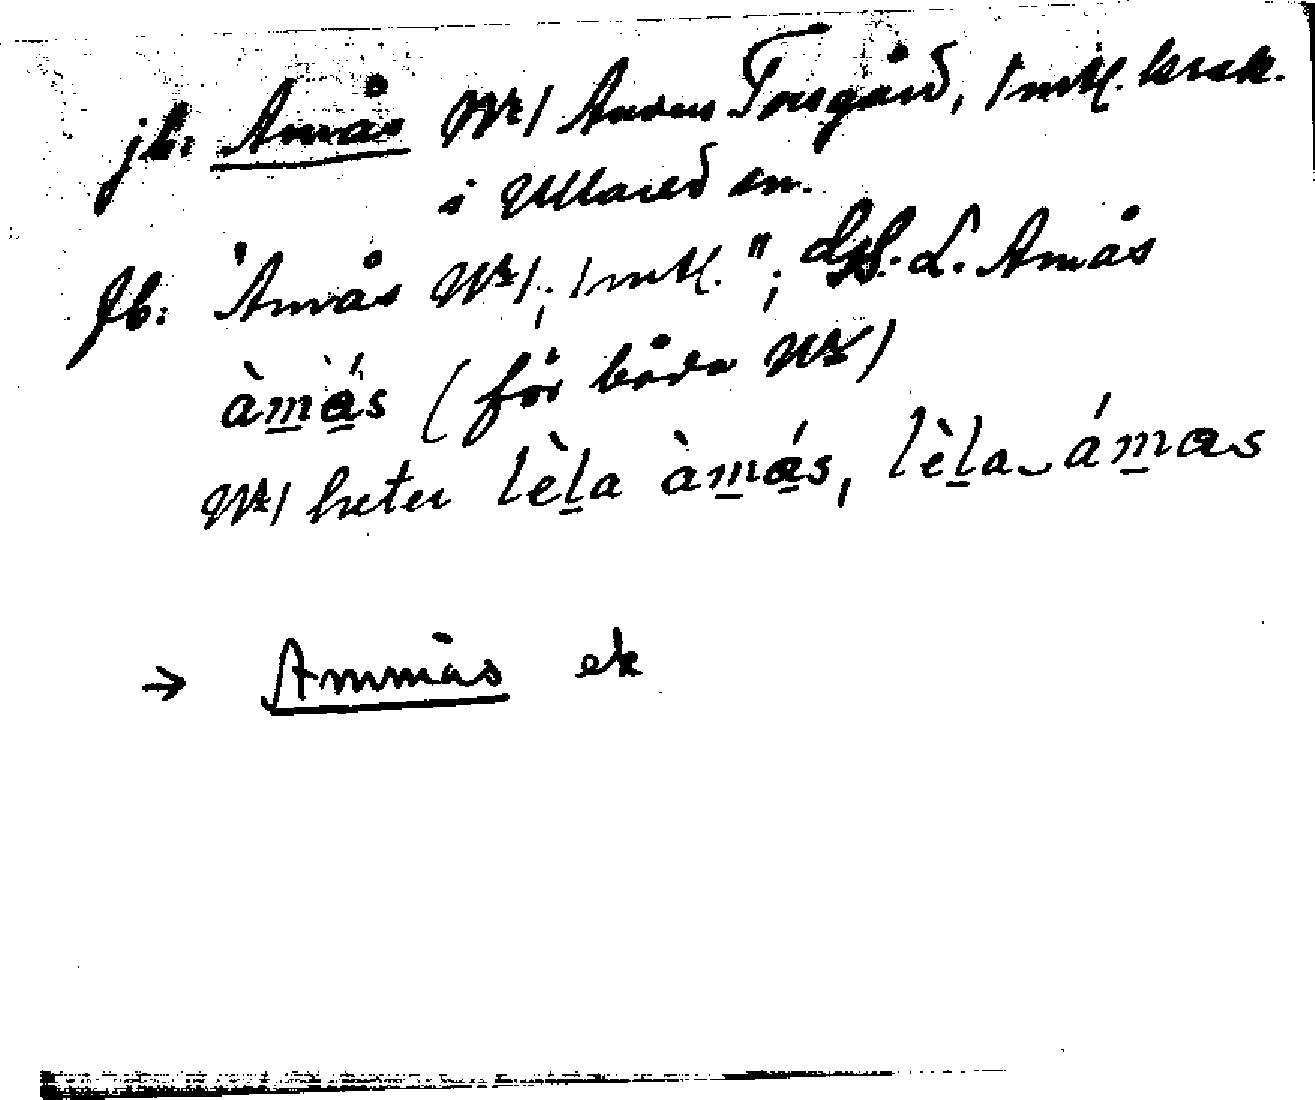 jb: Amås Nr 1 Anders Torsgård, 1 mtl. krsk.
i Ullared sn.
Jb: "Amås Nr 1; 1 mtl."; GS. L. Amås
àmás (för båda Nr)
Nr 1 heter lèla àmás, lèla ámas
→ Ammås ek